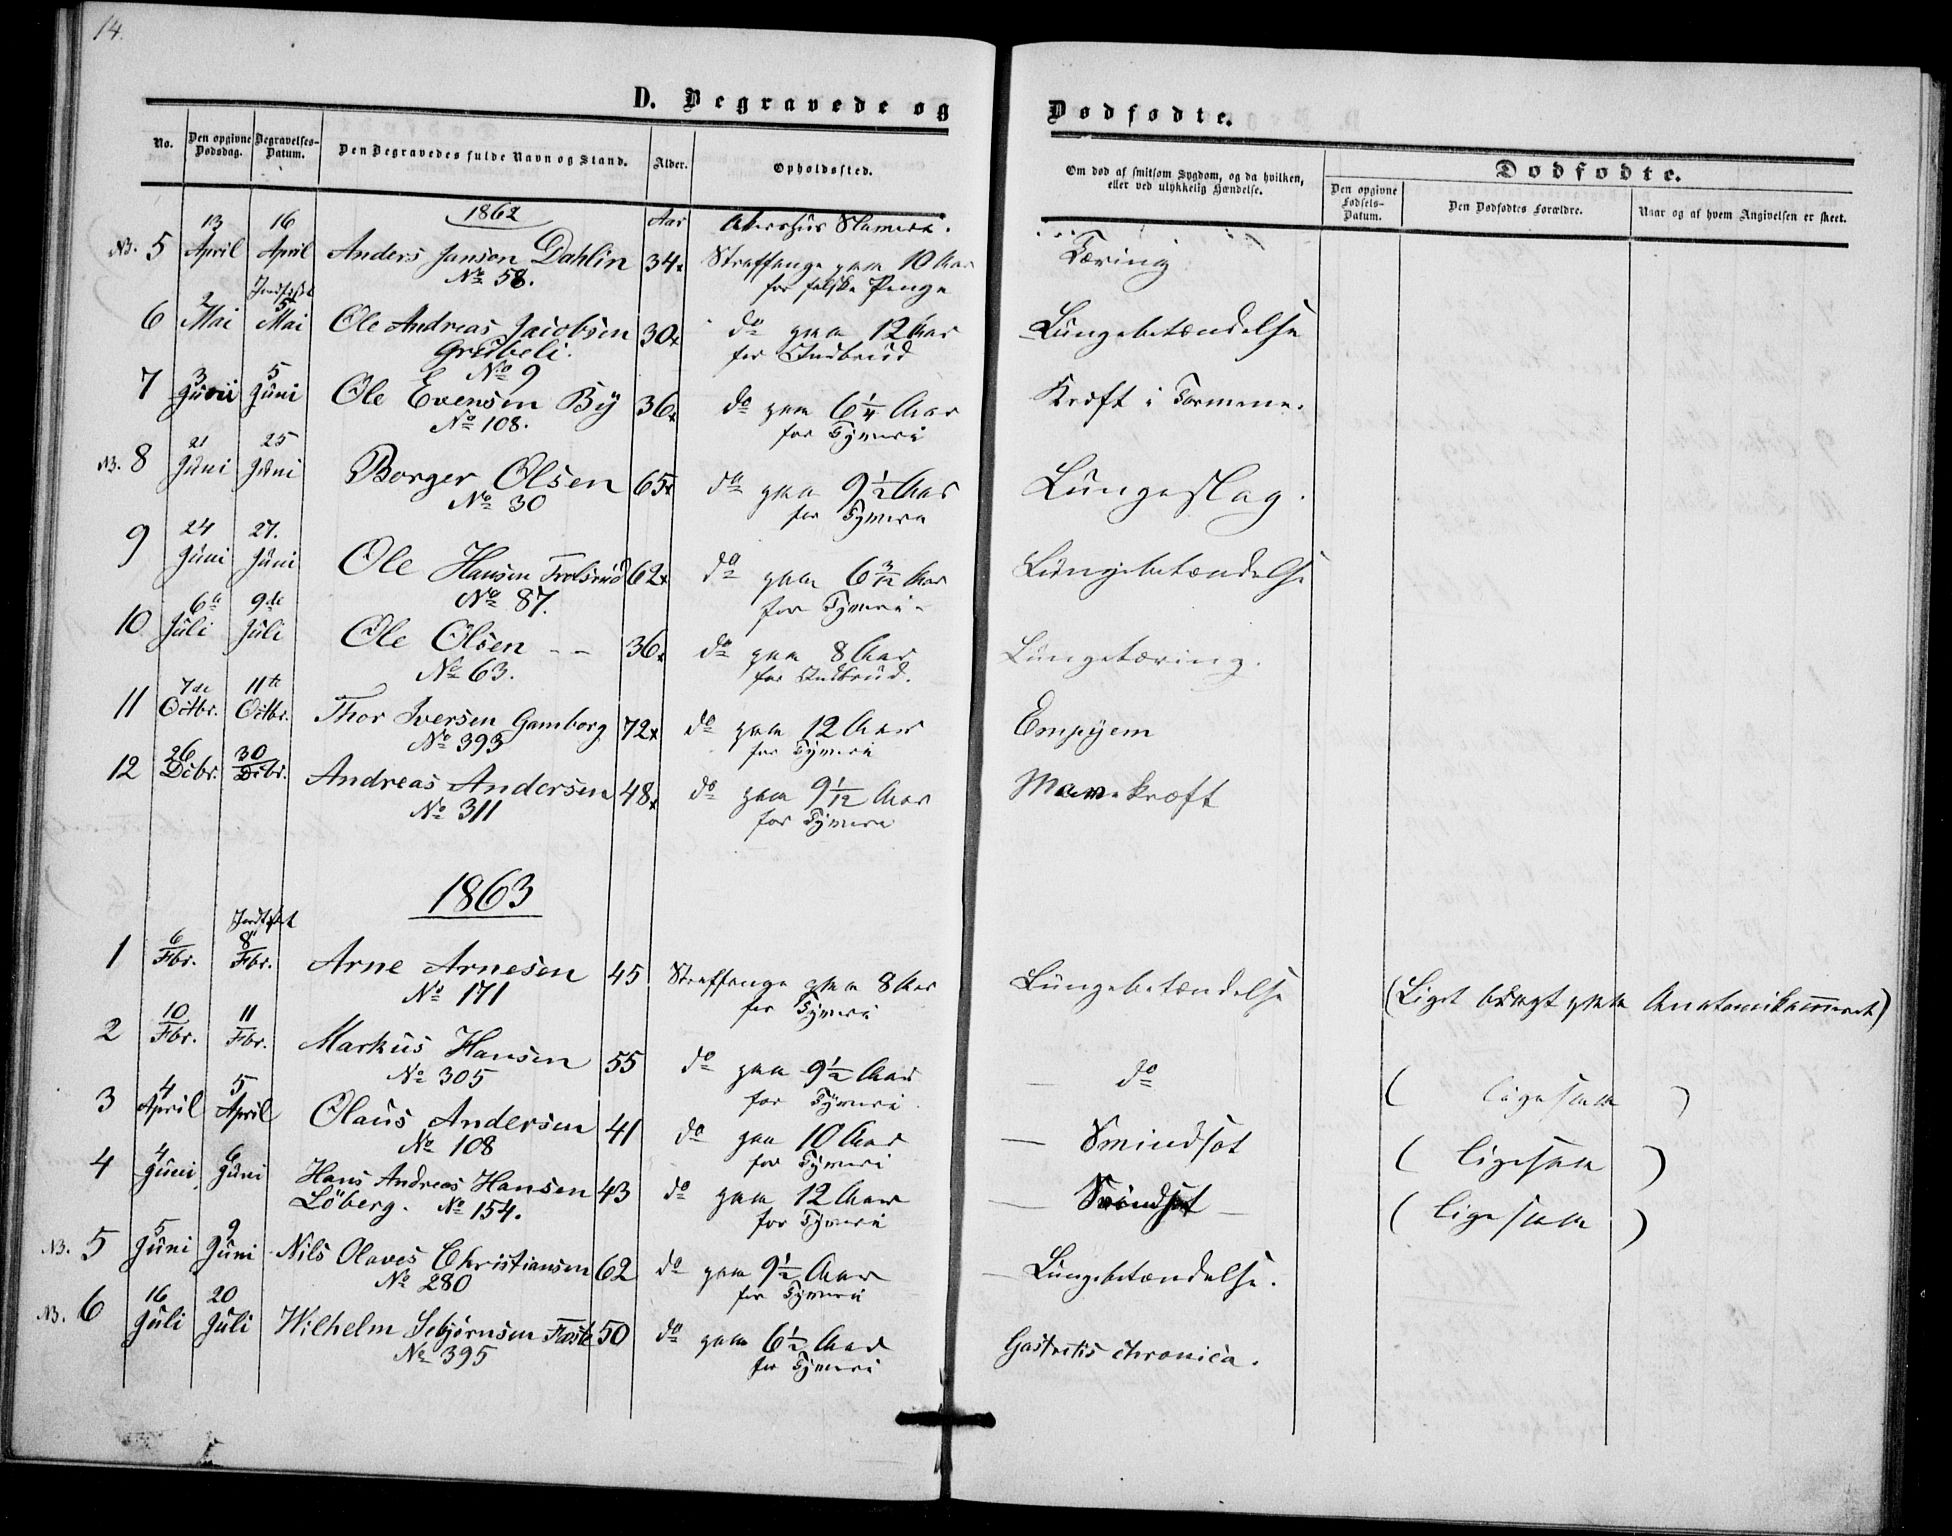 14.
D. Begravede og
Dødfødte.
No. Den opgivne Dødsdag. Begravelses-Datum. Den Begravedes fulde Navn og Stand. Alder. Opholdssted.
Om død af smitsom Sygdom, og da hvilken, eller ved ulykkelig Hændelse.
Dødfødte.
Den opgivne Fødsels-Datum. Den Dødfødtes Forældre. Naar og af hvem Angivelsen er skeet.
1862 Aar Akershus Slaveri.
NB. 5 13 April 16 April Anders Janson Dahlin 34 Straffange paa 10 Aar Tæring
No 58. for falske Penge
6 2 Mai 5 Mai Ole Andreas Jacobsen 30 do paa 12 Aar Lungebetændelse
Grebeli. for Indbrud
No 9
7 3 Juni 5 Juni Ole Evensen By 36 do paa 6 1/4 Aar Kræft i Tarmene.
No 108. for Tyveri
NB. 8 21 Juni 25 Juni Borger Olsen 65 do paa 9 1/2 Aar Lungeslag.
No 30 for Tyveri
9 24 Juni 27. Juni Ole Hansen 62 do paa 6 3/12 Aar Lungebetændelse
No 87. for Tyveri
10 6te Juli 9de Juli Ole Olsen - - 36 do paa 8 Aar Lungetæring.
No 63. for Indbrud.
11 7de Octbr. 11te Octbr. Thor Iversen Gamborg 72 do paa 12 Aar Empyem
No 393 for Tyveri
12 26 Dcbr. 30 Dcbr. Andreas Andersen 48 do paa 9 1/12 Aar Mavekræft
No 311 for Tyveri
1863
1 6 Fbr. 8 Fbr. Arne Arnesen 45 Straffange paa 8 Aar Lungebetændelse (Liget bragt paa Anatomikammeret)
No 171 for Tyveri
2 10 Fbr. 11 Fbr. Markus Hansen 55 do paa 9 1/2 Aar — do ( ligesaa )
No 305 for Tyveri
3 4 April 5 April Olaus Andersen 41 do paa 10 Aar — Svindsot ( ligesaa )
No 108 for Tyveri
4 4 Juni 6 Juni Hans Andreas Hansen 43 do paa 12 Aar — Svindsot — ( ligesaa )
Löberg. No 154. for Tyveri
NB. 5 5 Juni 9 Juni Nils Olaves Christiansen 62 do paa 9 1/2 Aar — Lungebetændelse.
No 280 for Tyveri
NB. 6 16 Juli 20 Juli Wilhelm Sebjørnsen 50 do paa 6 1/2 Aar Gastritis chronica.
No 395 for Tyveri